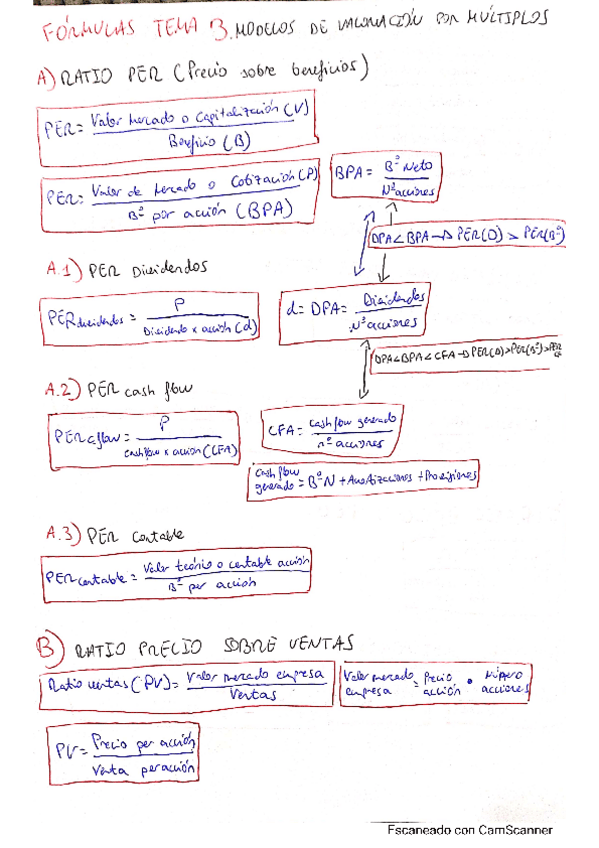 FÓRMULAS TEMA 3. MODELOS DE VALORACIÓN POR MÚLTIPLOS
A) RATIO PER (Precio sobre beneficios)
PER = Valor mercado o Capitalización (V) / Beneficio (B)
PER = Valor de mercado o Cotización (P) / Bº por acción (BPA)
BPA = Bº Neto / Nº acciones
DPA < BPA → PER(D) > PER(Bº)
A.1) PER Dividendos
PER dividendos = P / Dividendo x acción (d)
d = DPA = Dividendos / Nº acciones
DPA < BPA < CFA → PER(D) > PER(Bº) > PER CF
A.2) PER cash flow
PER cflow = P / cashflow x acción (CFA)
CFA = cash flow generado / nº acciones
cash flow generado = Bº N + Amortizaciones + Provisiones
A.3) PER Contable
PER contable = Valor teórico o contable acción / Bº por acción
B) RATIO PRECIO SOBRE VENTAS
Ratio ventas (PV) = Valor mercado empresa / Ventas
Valor mercado empresa = Precio acción • Número acciones
PV = Precio por acción / Venta por acción
Escaneado con CamScanner